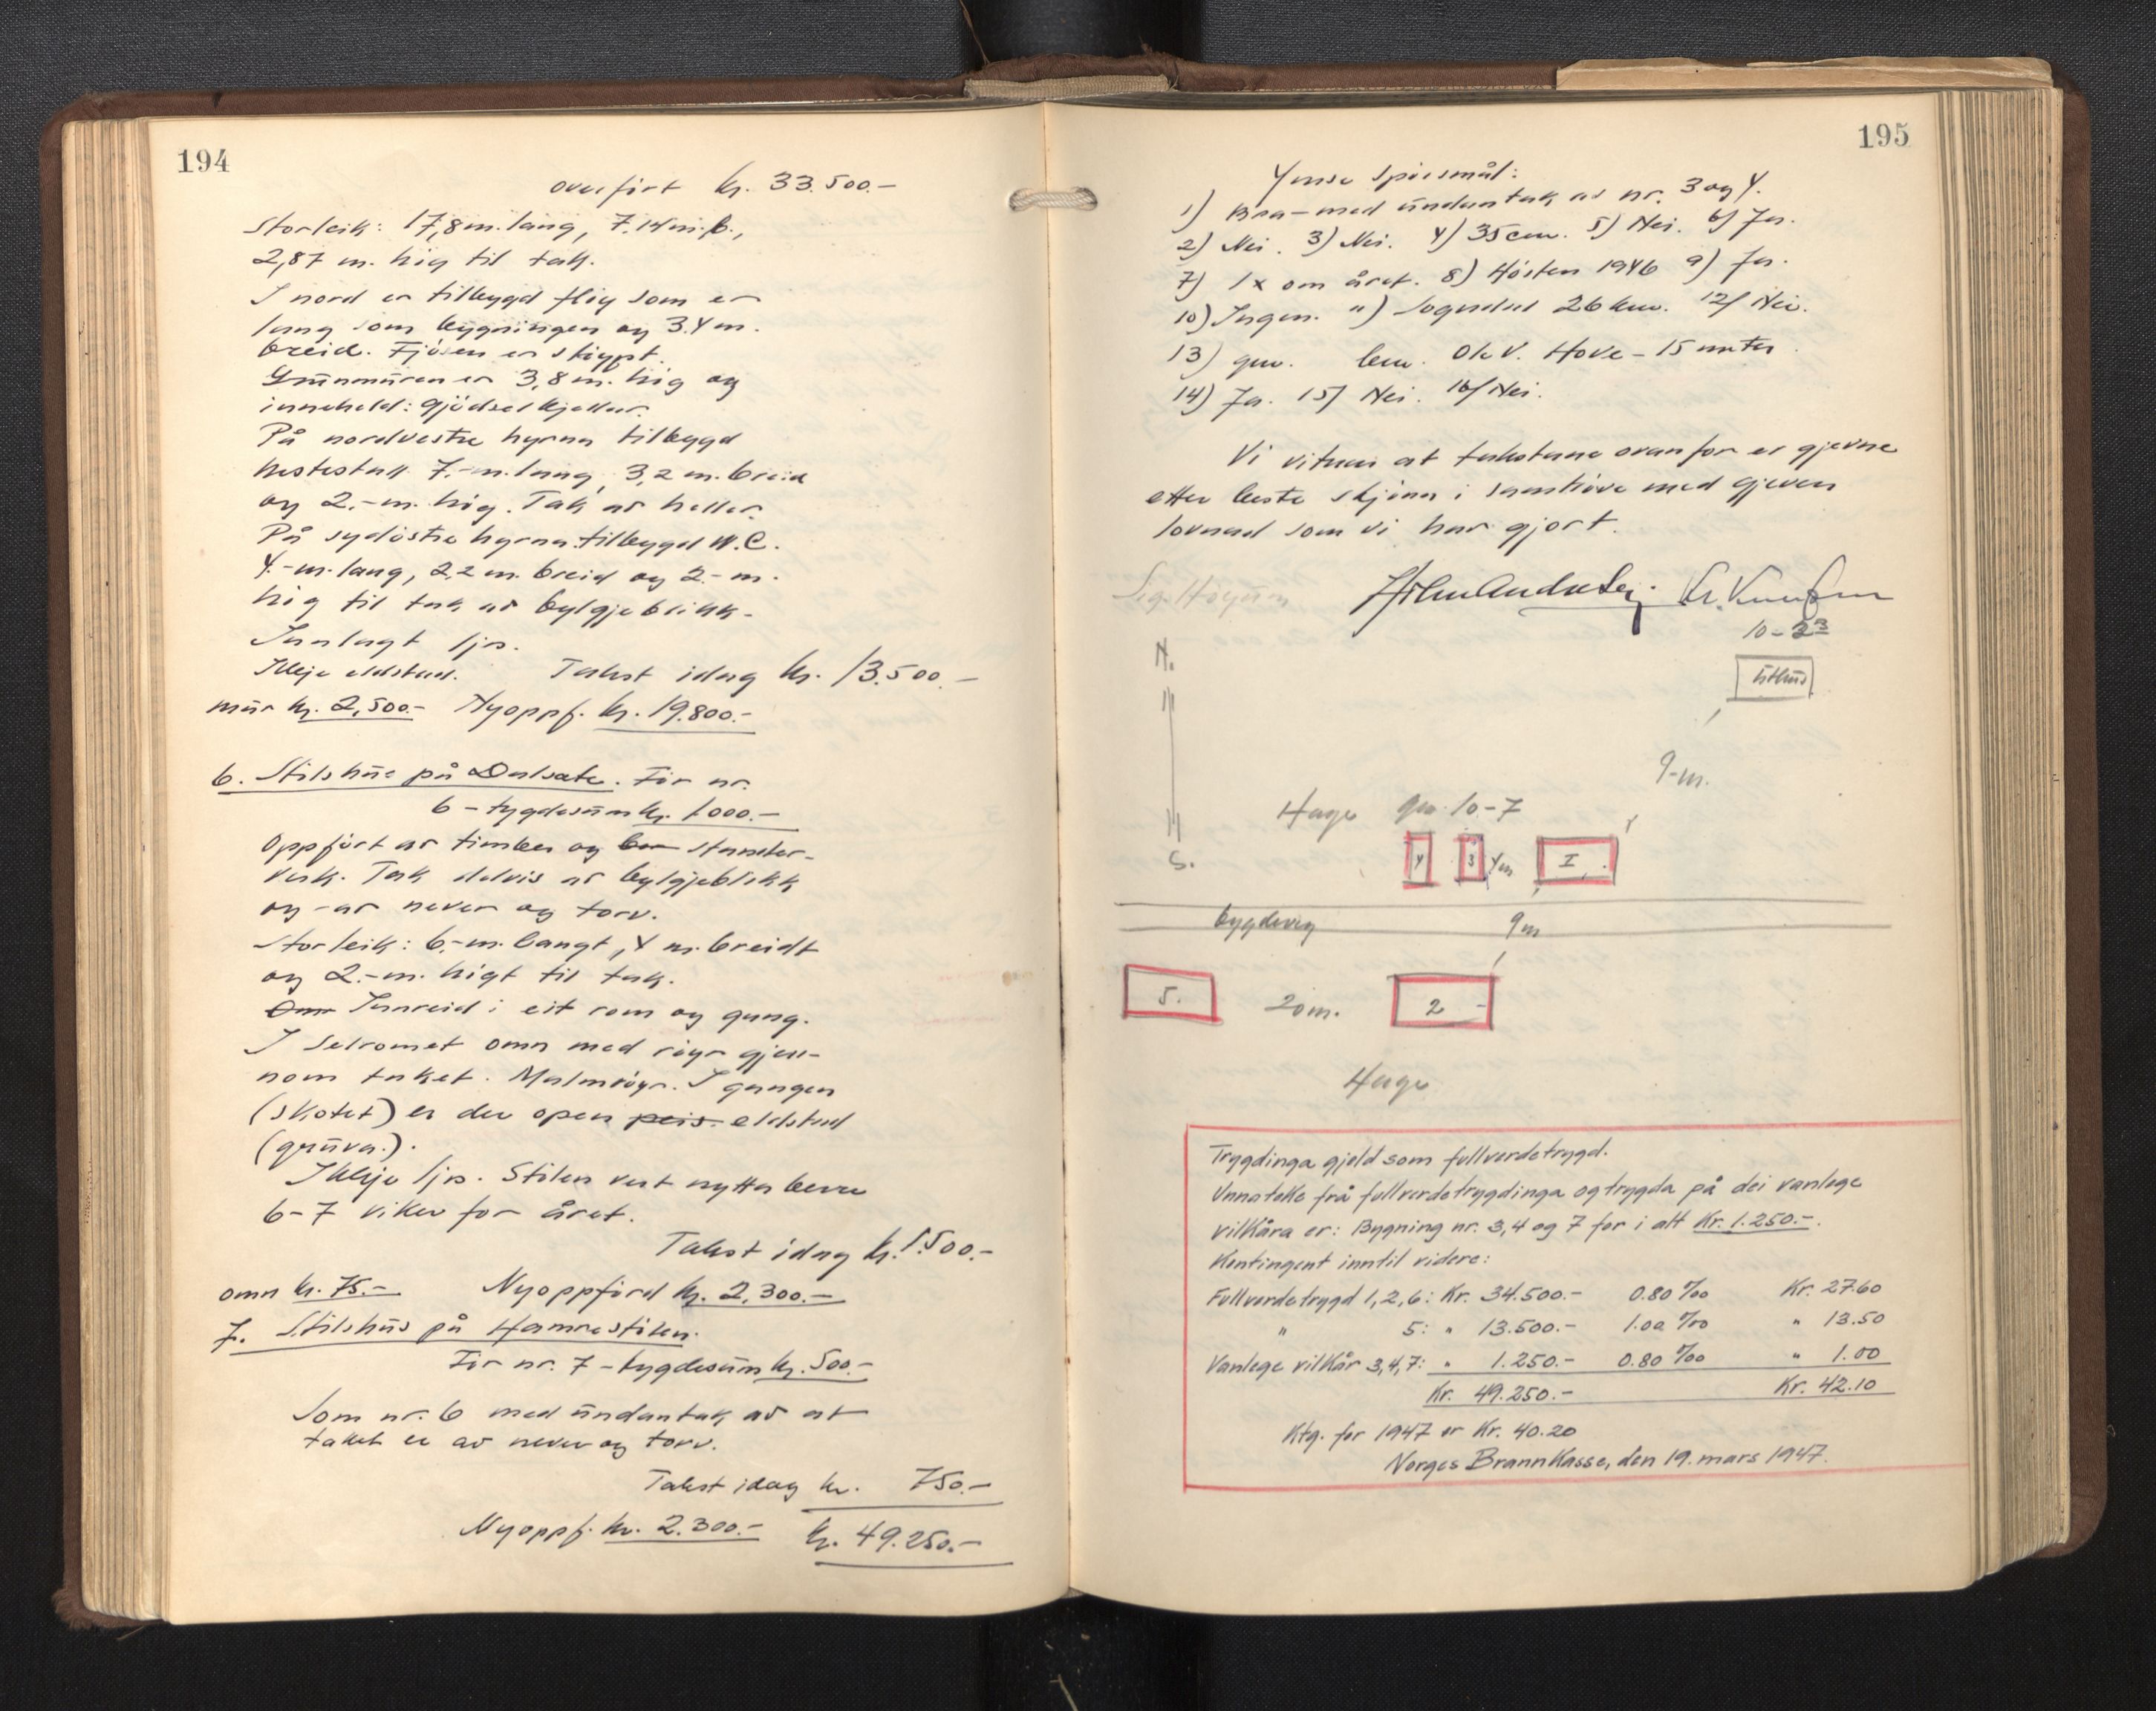 194
overført kr. 33.500.-
Storleik: 17,8 m. lang, 7.14 m. b.,
2,87 m. høg til tak.
I nord er tilbygd fløy som er
lang som bygningen og 3.4 m.
breid. Fjøsen er skiypt.
Grunnmuren er 3,8 m. høg og
inneheld: gjødselkjellar.
På nordvestre hyrna tilbygd
hestestall 7.-m. lang, 3,2 m. breid
og 2.-m. høg. Tak av heller.
På sydøstre hyrna tilbygd W.C.
4.-m. lang, 2,2 m. breid og 2.-m.
høg til tak av bylgjeblikk.
Innlagt ljos.
Ikkje eldstad. Takst idag kr. 13.500.-
mur kr. 2,500.- Nyoppf. kr. 19.800.-
6. Stølshus på Dalsete. Før nr.
6 - tygdesum kr. 1.000.-
Oppført av timber og stender-
verk. Tak delvis av bylgjeblikk
og - av never og torv.
Storleik: 6.-m. langt, 4 m. breidt
og 2.-m. høgt til tak.
Innreid i eit rom og gang.
I selromet omn med røyr gjen-
nom taket. Malmrøyr. I gangen
(skotet) er der open peis. eldstad
(gruva.).
Ikkje ljos. Stølen vert nytta berre
6-7 viker for året.
Takst idag kr. 1.500.-
omn kr. 75.- Nyoppførd kr. 2,300.-
7. Stølshus på Hamrestølen.
Før nr. 7 - tygdesum kr. 500.-
Som nr. 6 med undantak av at
taket er av never og torv.
Takst idag kr. 750.-
Nyoppf. kr. 2.300.- kr. 49.250.-
195
Ymse spørsmål:
1) Bra - med undantak av nr. 3 og 4.
2) Nei. 3) Nei. 4) 35 cm. 5) Nei. 6) Ja.
7) 1x om året. 8) Hösten 1946 9) Ja.
10) Ingen. 11) Sogndal 26 km. 12) Nei.
13) gnr. bnr. Ole V. Hove - 15 meter.
14) Ja. 15) Nei. 16) Nei.
Vi vitnar at takstane ovanfor er gjevne
etter beste skjønn i samhøve med gjeven
lovnad som vi har gjort.
10-23
N.
Uthus
9-m.
Hage gnr. 10-7
S.
4 3 4m I
bygdeveg 9m
5. 20m. 2
Hage
Trygdinga gjeld som fullverdetrygd.
Unnateke frå fullverdetrygdinga og trygda på dei vanlege
vilkåra er: Bygning nr. 3, 4 og 7 for i alt Kr. 1.250.-.
Kontingent inntil videre:
Fullverdetrygd 1, 2, 6: Kr. 34.500.- 0.80 ‰ Kr. 27.60
" 5: " 13.500.- 1.00 ‰ " 13.50
Vanlege vilkår 3, 4, 7: " 1.250.- 0.80 ‰ " 1.00
Kr. 49.250.- Kr. 42.10
Ktg. for 1947 er Kr. 40.20
Norges Brannkasse, den 19. mars 1947.